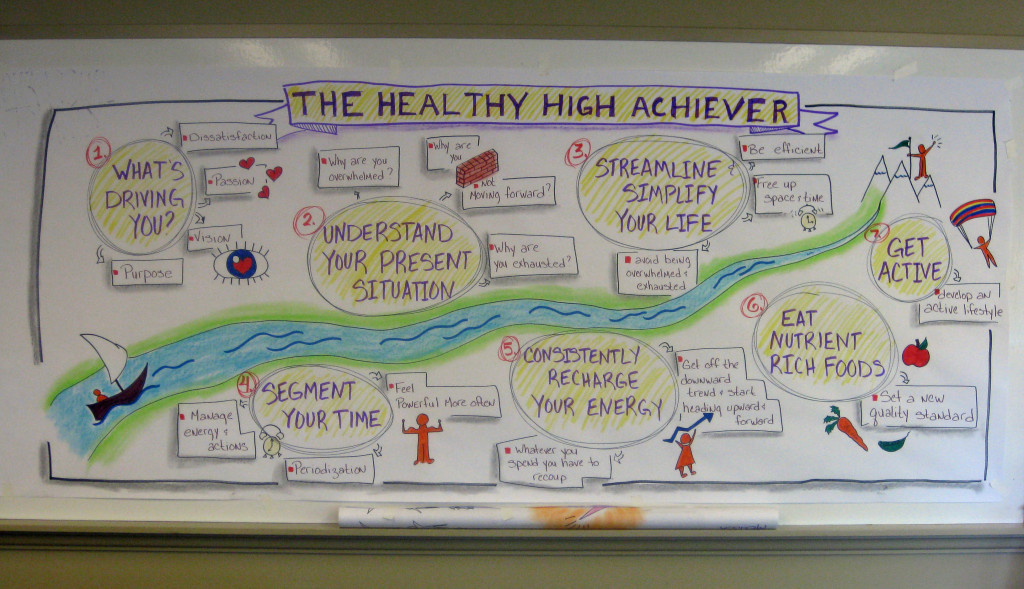 THE HEALTHY HIGH ACHIEVER
1.
WHAT'S
DRIVING
YOU?
Dissatisfaction
Passion
Vision
Purpose
2.
UNDERSTAND
YOUR PRESENT
SITUATION
Why are you
overwhelmed?
Why are
you
not
moving forward?
Why are
you exhausted?
3.
STREAMLINE
SIMPLIFY
YOUR LIFE
Be efficient
Free up
space + time
avoid being
overwhelmed +
exhausted
4.
SEGMENT
YOUR TIME
Manage
energy +
actions
Periodization
Feel
Powerful More often
5.
CONSISTENTLY
RECHARGE
YOUR ENERGY
Get off the
downward
trend + start
heading upward +
forward
Whatever you
spend you have to
recoup
6.
EAT
NUTRIENT
RICH FOODS
Set a new
quality standard
7.
GET
ACTIVE
develop an
active lifestyle